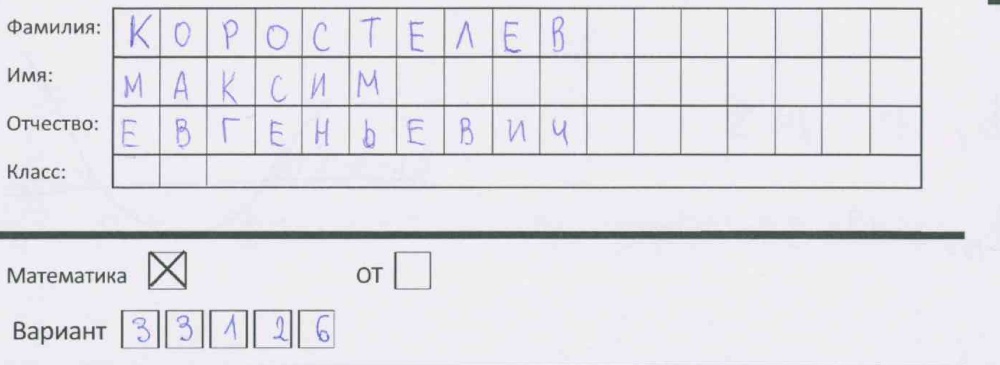 Фамилия: КОРОСТЕЛЕВ
Имя: МАКСИМ
Отчество: ЕВГЕНЬЕВИЧ
Класс:
Математика ОТ
Вариант 33126